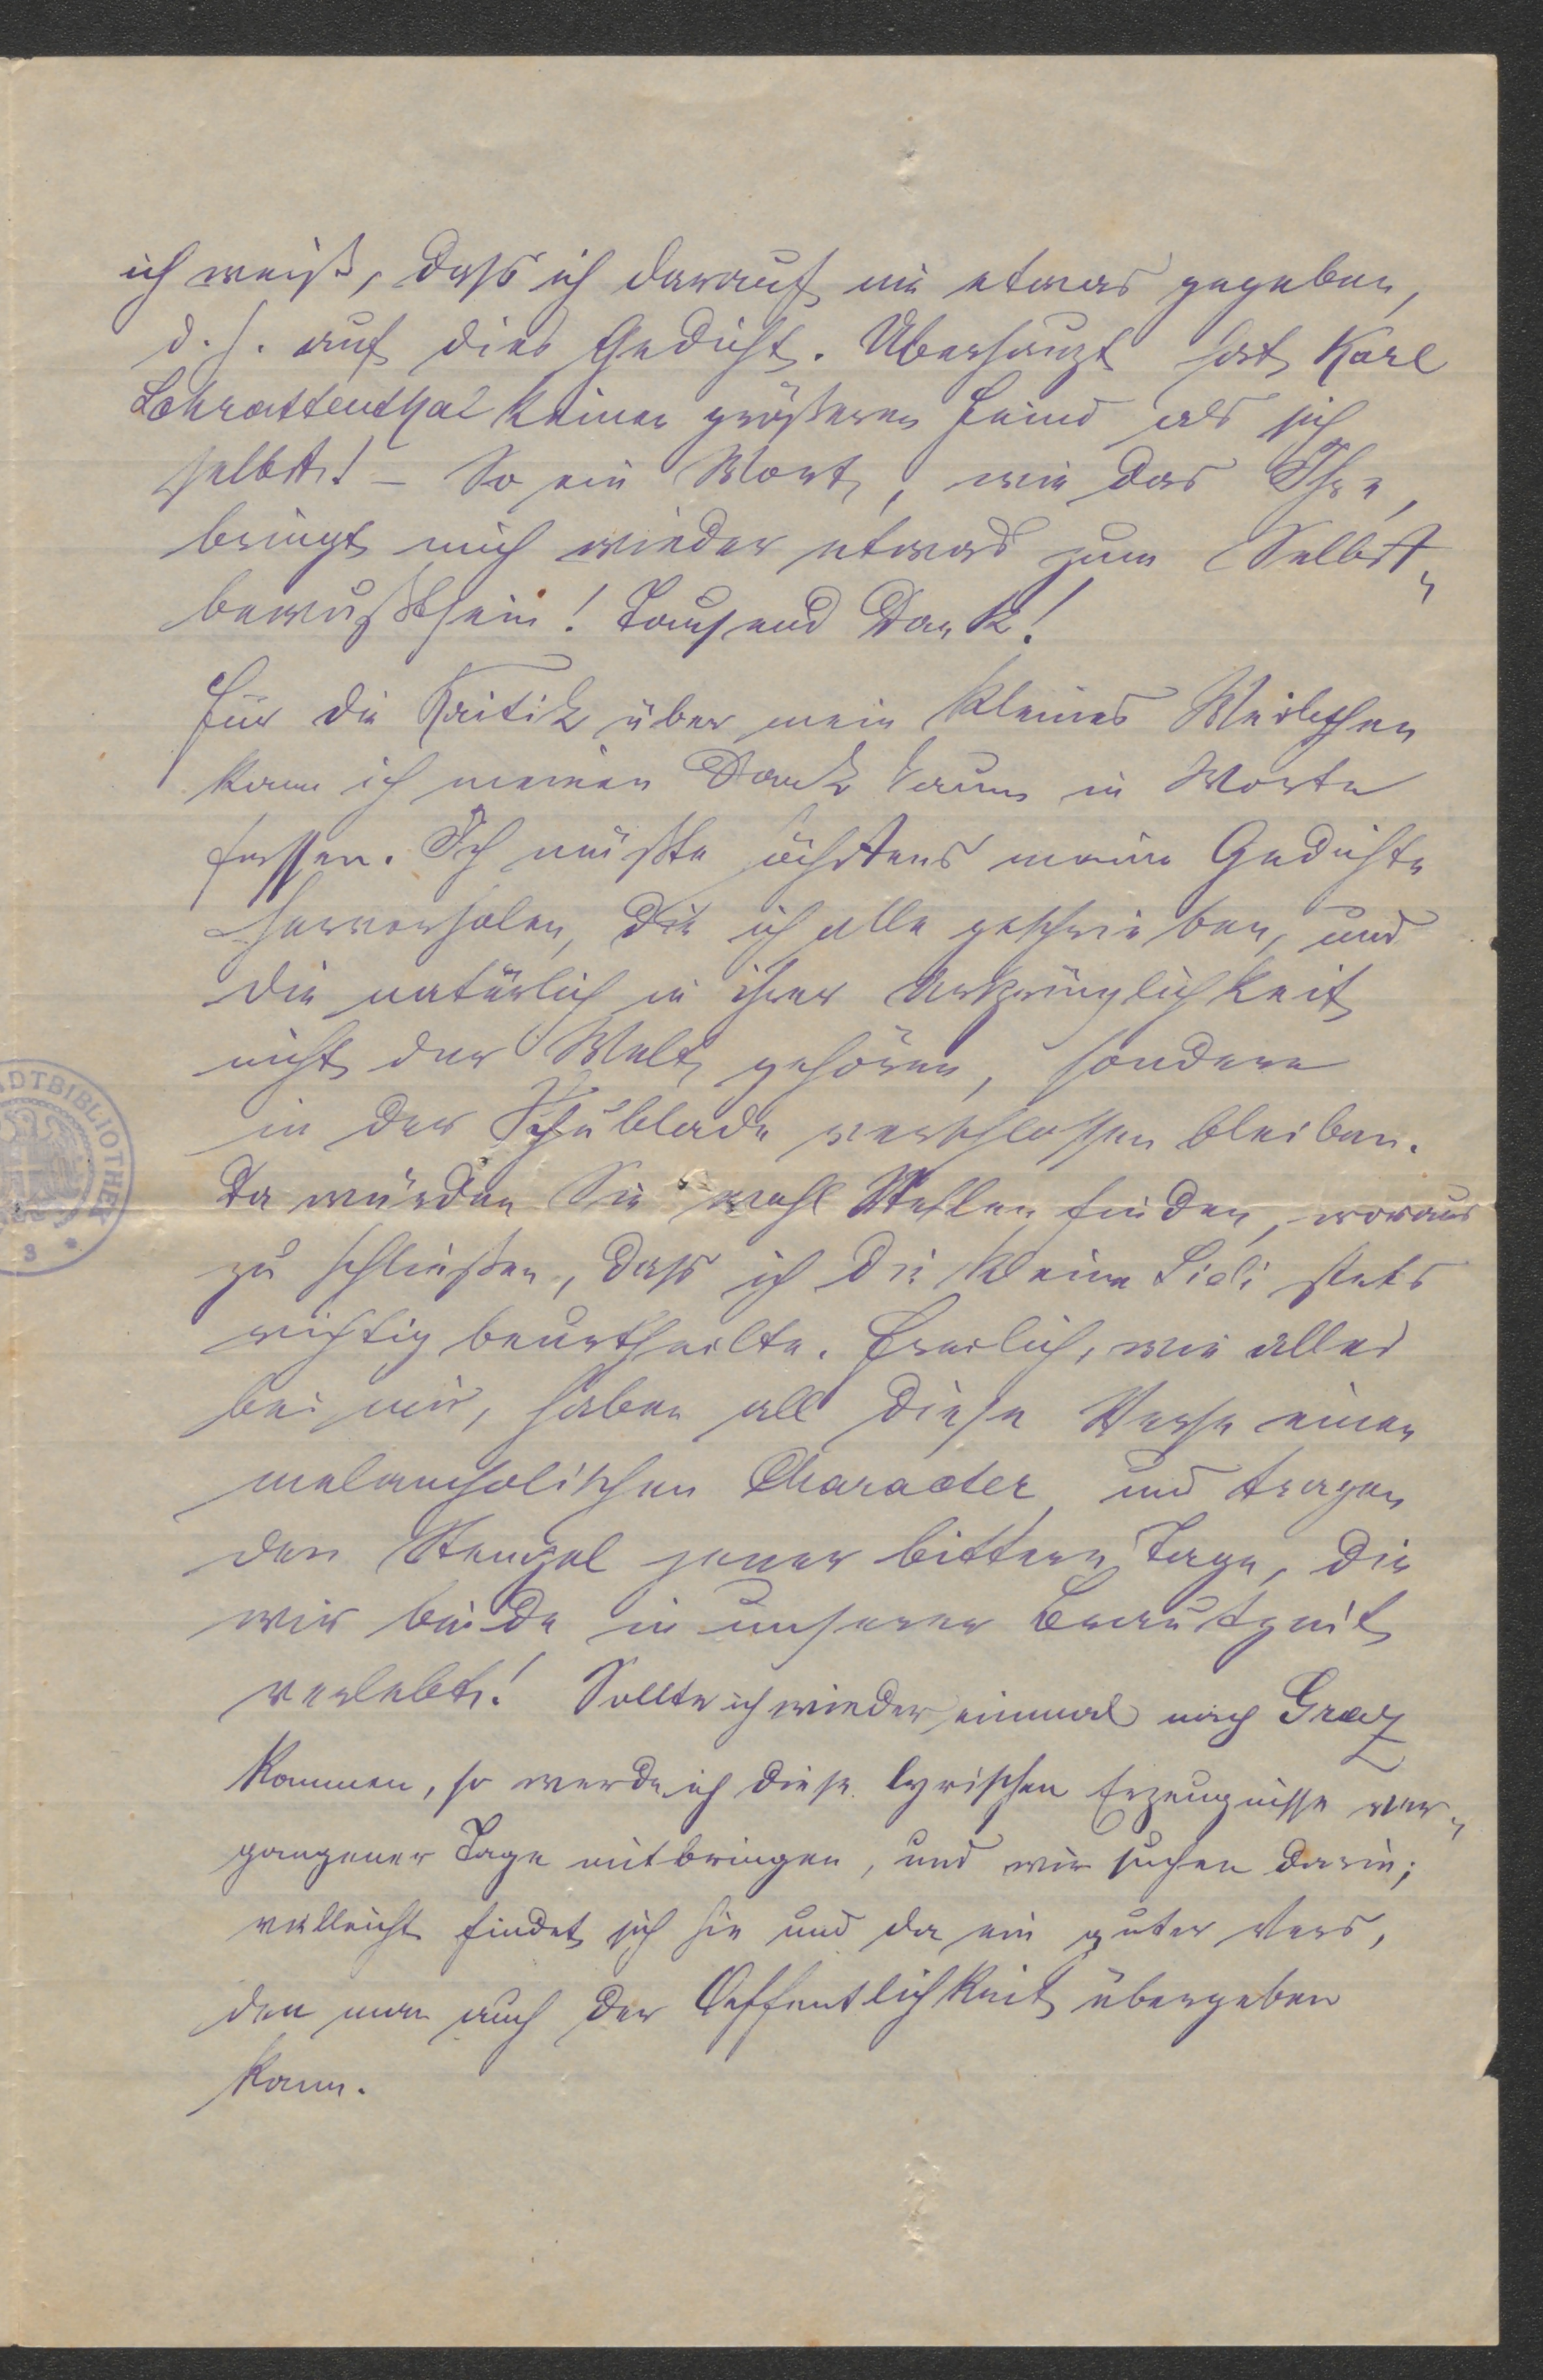 ich weiß, dass ich darauf nie etwas gegeben,
d. h. auf dies Gedicht. Überhaupt hat Karl
Schrattenthal keinen größeren Feind als sich
selbst! – So ein Wort, wie das Ihre,
bringt mich wieder etwas zum Selbst-
bewußtsein! Tausend Dank!
Für die Kritik über mein kleines Weibchen
kann ich meinen Dank kaum in Worte
fassen. Ich müßte höchstens meine Gedichte
hervorholen, die ich alle geschrieben, und
die natürlich in ihrer Ursprünglichkeit
nicht der Welt gehören, sondern
in der Schublade verschlossen bleiben.
Da würden Sie wohl Stellen finden, woraus
zu schließen, dass ich die kleine Lidi stets
richtig beurtheilte. Freilich, wie alles
bei mir, haben all diese Verse einen
melancholischen Character und tragen
den Stempel jener bittern Tage, die
wir beide in unserer Brautzeit
verlebt! Sollte ich wieder einmal nach Graz
kommen, so werde ich diese lyrischen Erzeugnisse ver-
gangener Tage mitbringen, und wir suchen darin;
vielleicht findet sich hie und da ein guter Vers,
den man auch der Oeffentlichkeit übergeben
kann.
DTBIBLIOTHEK